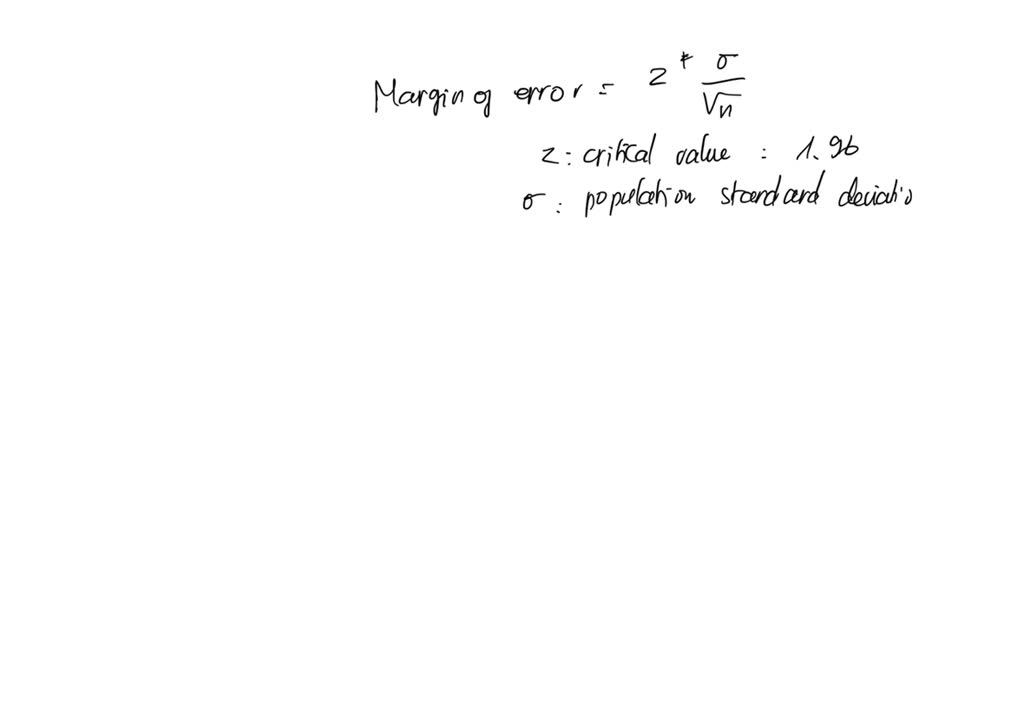 Margin of error = z * σ/√n
z: critical value : 1.96
σ: population standard deviatio